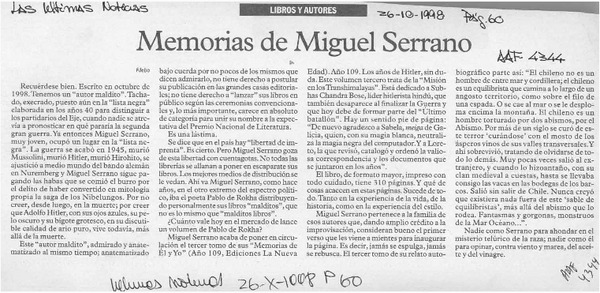 Las Ultimas Noticias
LIBROS Y AUTORES
26-10-1998
Pág. 60
Memorias de Miguel Serrano
AAF 4344
Filebo
Recuérdese bien. Escrito en octubre de
1998. Tenemos un "autor maldito". Tacha-
do, execrado, puesto aún en la "lista negra"
elaborada en los años 40 para distinguir a
los partidarios del Eje, cuando nadie se atre-
vía a pronosticar en qué pararía la segunda
gran guerra. Ya entonces Miguel Serrano,
muy joven, ocupó un lugar en la "lista ne-
gra". La guerra se acabó en 1945, murió
Mussolini, murió Hitler, murió Hirohito, se
ajustició a medio mundo del bando alemán
en Nuremberg y Miguel Serrano sigue pa-
gando las habas que se comió el burro por
el delito de haber convertido en mitología
propia la saga de los Nibelungos. Por no
creer, desde luego, en la muerte; por creer
que Adolfo Hitler, con sus ojos azules, su pe-
lo oscuro y su bigote grotesco, en su discuti-
ble calidad de ario puro, vive todavía, más
allá de la muerte.
Este "autor maldito", admirado y anate-
matizado al mismo tiempo; anatematizado
bajo cuerda por no pocos de los mismos que
dicen admirarlo, no tiene derecho a postular
su publicación en las grandes casas editoria-
les; no tiene derecho a "lanzar" sus libros en
público según las ceremonias convenciona-
les y, lo más importante, carece en absoluto
de categoría para unir su nombre a la expec-
tativa del Premio Nacional de Literatura.
Es una lástima.
Se dice que en el país hay "libertad de im-
prenta". Es cierto. Pero Miguel Serrano goza
de esta libertad con cuentagotas. No todas las
librerías se allanan a poner en escaparate sus
libros. Los mejores medios de distribución se
le vedan. Ahí va Miguel Serrano, como hace
años, en el otro extremo del espectro polí-
tico, iba el poeta Pablo de Rokha distribuyen-
do personalmente sus libros "malditos", que
no es lo mismo que "malditos libros".
¿Cuánto vale hoy en el mercado de lance
un volumen de Pablo de Rokha?
Miguel Serrano acaba de poner en circu-
lación el tercer tomo de sus "Memorias de
Él y Yo" (Año 109, Ediciones La Nueva
Edad). Año 109. Los años de Hitler, sin du-
da. Este volumen tercero trata de la "Misión
en los Transhimalayas". Está dedicado a Sub-
has Chandra Bose, líder hitlerista hindú, que
también desaparece al finalizar la Guerra y
que hoy debe de formar parte del "Último
batallón". Hay un sentido pie de página:
"De nuevo agradezco a Sabela, meiga de Ga-
licia, quien, con su magia blanca, neutrali-
za la magia negra del computador. Y a Lore-
to, la que revisó, catalogó y ordenó la valio-
sa correspondencia y los documentos que
aquí van".
El libro, de formato mayor, impreso con
todo cuidado, tiene 310 páginas. Y qué de
cosas acaecen en estas páginas. Sucede de to-
do. Tanto en la experiencia de la vida, de la
historia, como en la experiencia del mundo.
Miguel Serrano pertenece a la familia de
esos autores que, dando amplio crédito a la
improvisación, consideran bueno el primer
verso que les viene a mientes para inaugurar
la página. Es decir, jamás se espulga, jamás
se embauca. El tercer tomo de su relato auto-
biográfico parte así: "El chileno no es un
hombre de entre mar y cordillera; el chileno
es un equilibrista que camina a lo largo de un
angosto territorio, como sobre el filo de una
espada. O se cae al mar o se le desplo-
ma encima la montaña. El chileno es un
hombre torturado por dos abismos, por el
Abismo. Por más de un siglo se curó de es-
te terror 'cuñándose' con el mosto de los
ásperos vinos de sus valles transversales. Y
ahí sobrevivió, tratando de olvidarse de to-
do lo demás. Muy pocas veces salió al ex-
tranjero, y cuando lo hizo, fue con su
afán medieval a cuestas, hasta se llevaba
consigo las vacas en las bodegas de los bar-
cos. Salió sin salir de Chile. Nunca creyó
que existiera nada fuera de este 'sable de
equilibristas', más allá del abismo que lo
rodea. Fantasmas y gorgonas, monstruos
de la Mar Océano...".
Nadie como Serrano para ahondar en el
misterio telúrico de la raza; nadie como él
para opinar, contra viento y marea, del aceite
y del vinagre.
Ultimas Noticias 26-X-1998 P 60
AAF 4344